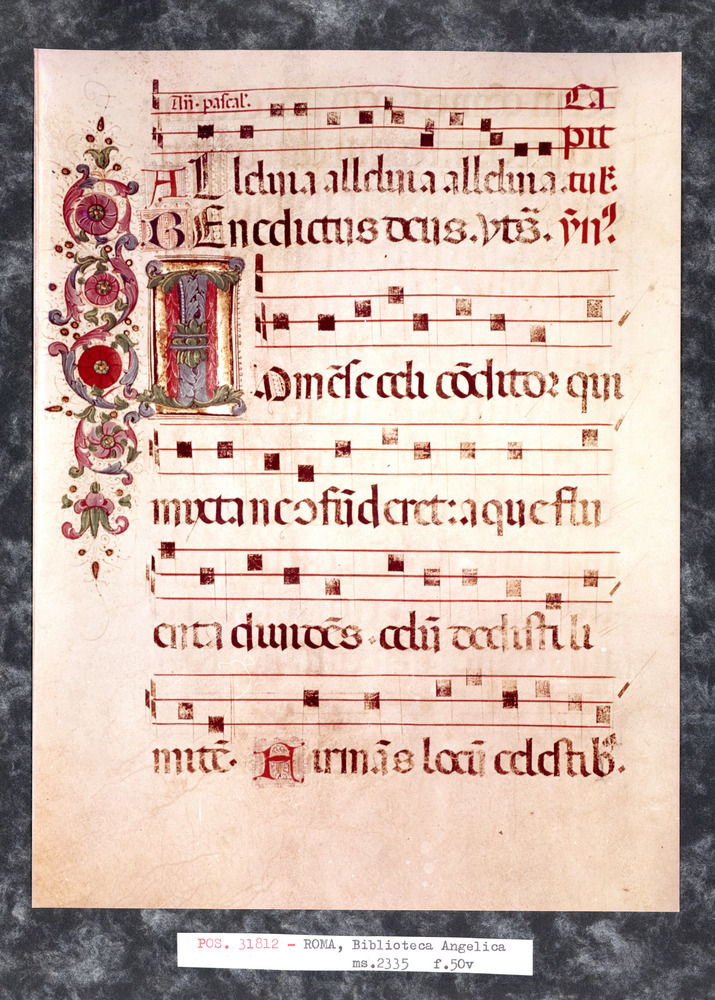 Añ. pascal'.
Ca
pit
Alleluia alleluia alleluia .tul'.
Benedictus deus. vt s̃. ỹn̄.
Im̃ẽse celi cõditor qui
mixta ne cõfũderet: aque flu
enta diuidẽs celũ dedisti li
mitẽ. Firmãs locũ celestib'.
POS. 31812 - ROMA, Biblioteca Angelica
ms.2335 f.50v